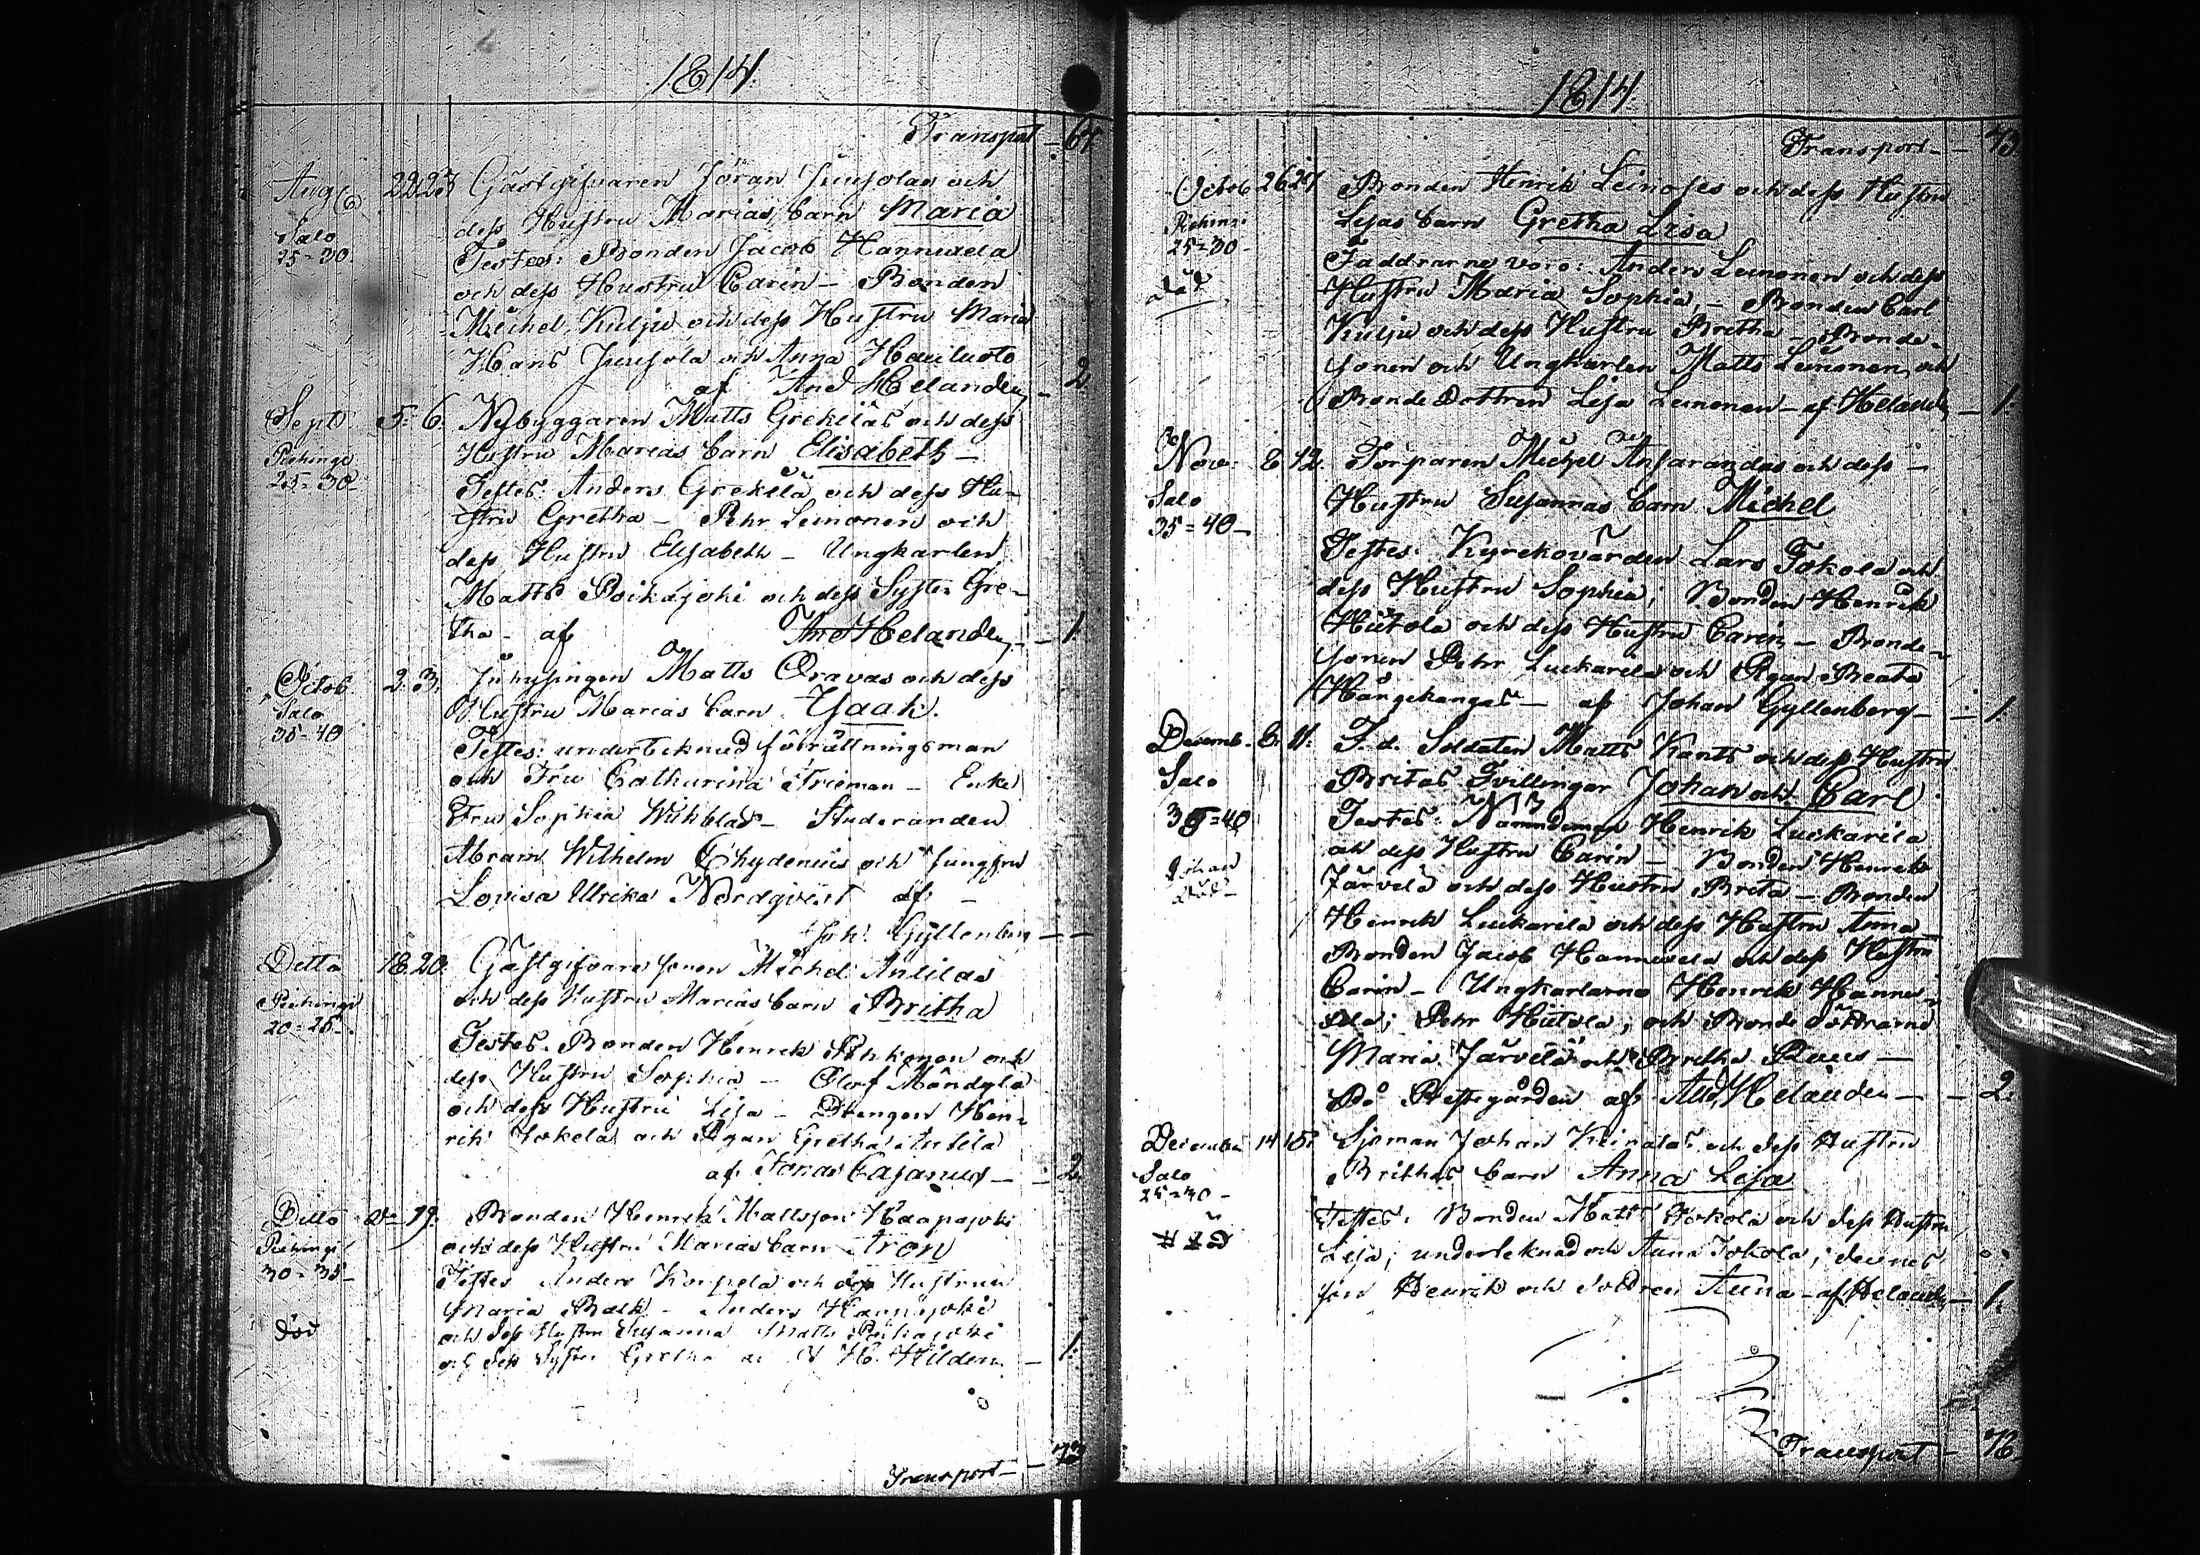 1814.
Transport - 67.
Aug. 22. 23. Gästgifvaren Jöran Juusolas och
dess Hustru Marias barn Maria
Salo
25=30.
Testes: Bonden Jacob Hannusela
och dess Hustru Carin - Bonden
Michel Kulju och dess Hustru Maria
Hans Juusola och Anna Hailuoto
af And Helander - 2.
Sept. 5. 6. Nybyggaren Matts Grekiläs och dess
Hustru Marias barn Elisabeth -
Piehingi
25=30-
Testes: Anders Grekilä och dess Hu-
stru Gretha - Pehr Leinonen och
dess Hustru Elisabeth - Ungkarlen
Matts Poikajoki och dess Syster Gre-
tha - af And Helander - 1.
Octob. 2. 3. Inhysingen Matts Oravas och dess
Hustru Marias barn Isaak.
Salo
35-40
Testes: undertecknad förrättningsman
och Fru Catharina Frieman - Enke
Fru Sophia - Studeranden
Abram Wilhelm Chydenius och Jungfru
Lovisa Ulrika Nordqvist af -
Joh. Gyllenberg - -
Ditto 18. 20. Gästgifvare sonen Michel Antilas
och dess Hustru Marias barn Britha
Piehingi
20=25-
Testes. Bonden Henrik och
dess Hustru Sophia - Olof Mändylä
och dess Hustru Lisa - Drengen Hen-
rik Jokela och Pigan Gretha Antila
af Jonas Cajanus - 2.
Ditto 19. Bonden Henrik Mattsson Haapajoki
och dess Hustru Marias barn Aron
Piehingi
30=35-
Testes Anders Korpela och dess Hustru
Maria - Anders Haapajoki
död
och dess Hustru Susanna Matts Poikajoki
och dess Syster Gretha af H. Hildén - 1.
Transport - 73
1814.
Transport - - 73.
Octob. 26 27 Bonden Henrik Leinoses och dess Hustru
Lisas barn Gretha Lisa
Piehingi
25=30-
Faddrarne voro: Anders Leinonen och dess
död
Hustru Maria Sophia, - Bonden Carl
Kulju och dess Hustru Bretha - Bonde-
sonen och Ungkarlen Matts Leinonen och
Bonde Dottren Lisa Leinonen - af Helander - 1.
Nov. 8 12. Torparen Michel Ansarandas och dess -
Hustru Susannas barn Michel
Salo
35=40-
Testes: Kyrkovärden Lars Jokela och
dess Hustru Sophia; Bonden Henrik
Hiitola och dess Hustru Carin, - Bonde-
sonen Pehr Luckarila och Pigan Beata
Hängekangas - af Johan Gyllenberg - - 1
Decemb. 8. 11. F. d. Soldaten Matts Kants och dess Hustru
Britas Tvillingar Johan och Carl
Salo
35=40
Testes: Nämndeman Henrik Luckarila
och dess Hustru Carin - Bonden Henrik
Johan
död-
Järvelä och dess Hustru Brita - Bonden
Henrik Luckarila och dess Hustru Anna
Bonden Jacob Hannusela och dess Hustru
Carin - Ungkarlarne Henrik Hannu-
sela; Pehr Hiitola; och Bonde döttrarne
Maria Järvelä och Britha -
På Prestegården af And. Helander - - 2.
December 14 15. Sjöman Johan Keinatas och dess Hustru
Brithas barn Anna Lisa
Salo
25=30-
Testes: Bonden Matts Jokola och dess Hustru
Lisa; undertecknad och Anna Jokola; dennes
son Henrik och dottren Anna - af Helander - 1.
Transport - 78